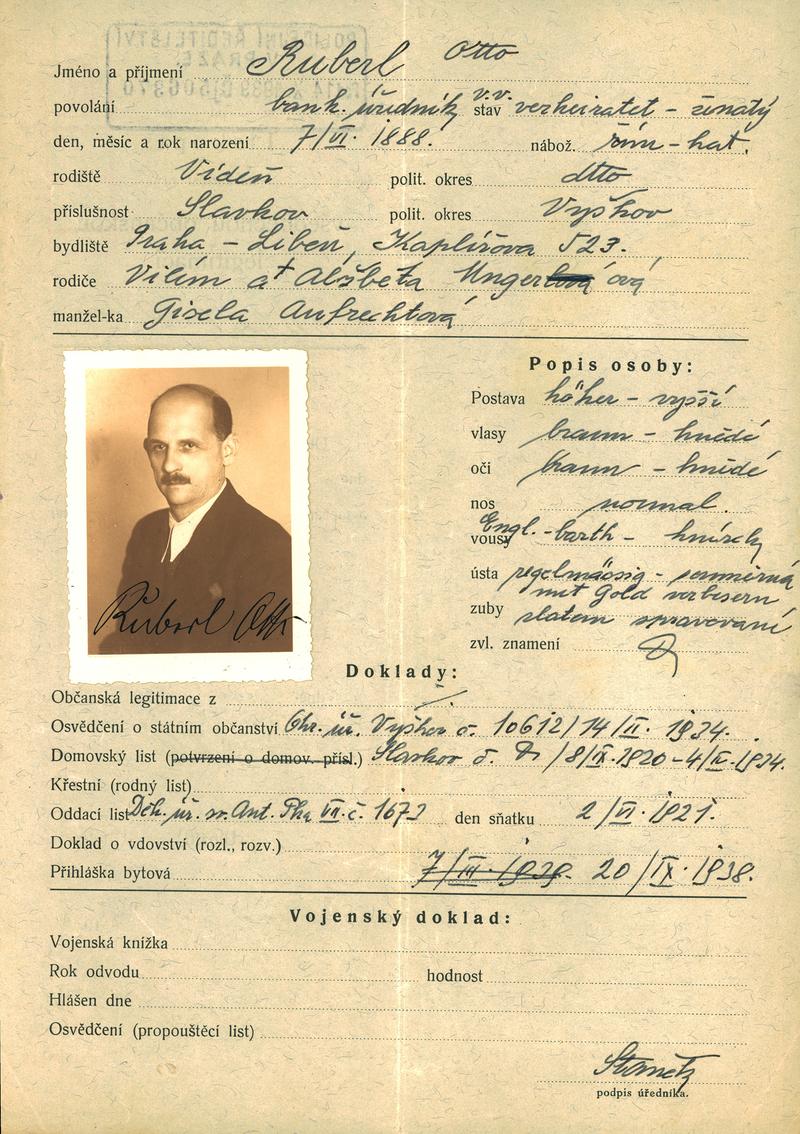 Jméno a příjmení Ruberl Otto
povolání bank. úředník v.v. stav verheiratet - ženatý
den, měsíc a rok narození 7/VI. 1888. nábož. řím-kat.
rodiště Vídeň polit. okres dtto
příslušnost Slavkov polit. okres Vyškov
bydliště Praha - Libeň, Kaplířova 523.
rodiče Vilém a † Alžběta Unger ová
manžel-ka Gisela Aufrechtová
Popis osoby:
Postava höher - vyšší
vlasy braun - hnědé
oči braun - hnědé
nos normal.
vousy Engl.-barth -
ústa regelmässig - souměrná
mit Gold verbesern
zuby zlatem spravované
zvl. znamení
Ruberl Otto
Doklady:
Občanská legitimace z
Osvědčení o státním občanství Okr. úř. Vyškov č. 10612/14/II. 1934.
Domovský list (potvrzení o domov. přísl.) Slavkov č. /8/IX.1920-4/IV.1934.
Křestní (rodný list)
Oddací list Děk. úř. sv. Ant. Pha VII. č. 1673 den sňatku 2/VI. 1921.
Doklad o vdovství (rozl., rozv.)
Přihláška bytová 7/III. 1939. 20/IX. 1938.
Vojenský doklad:
Vojenská knížka
Rok odvodu hodnost
Hlášen dne
Osvědčení (propouštěcí list)
podpis úředníka.